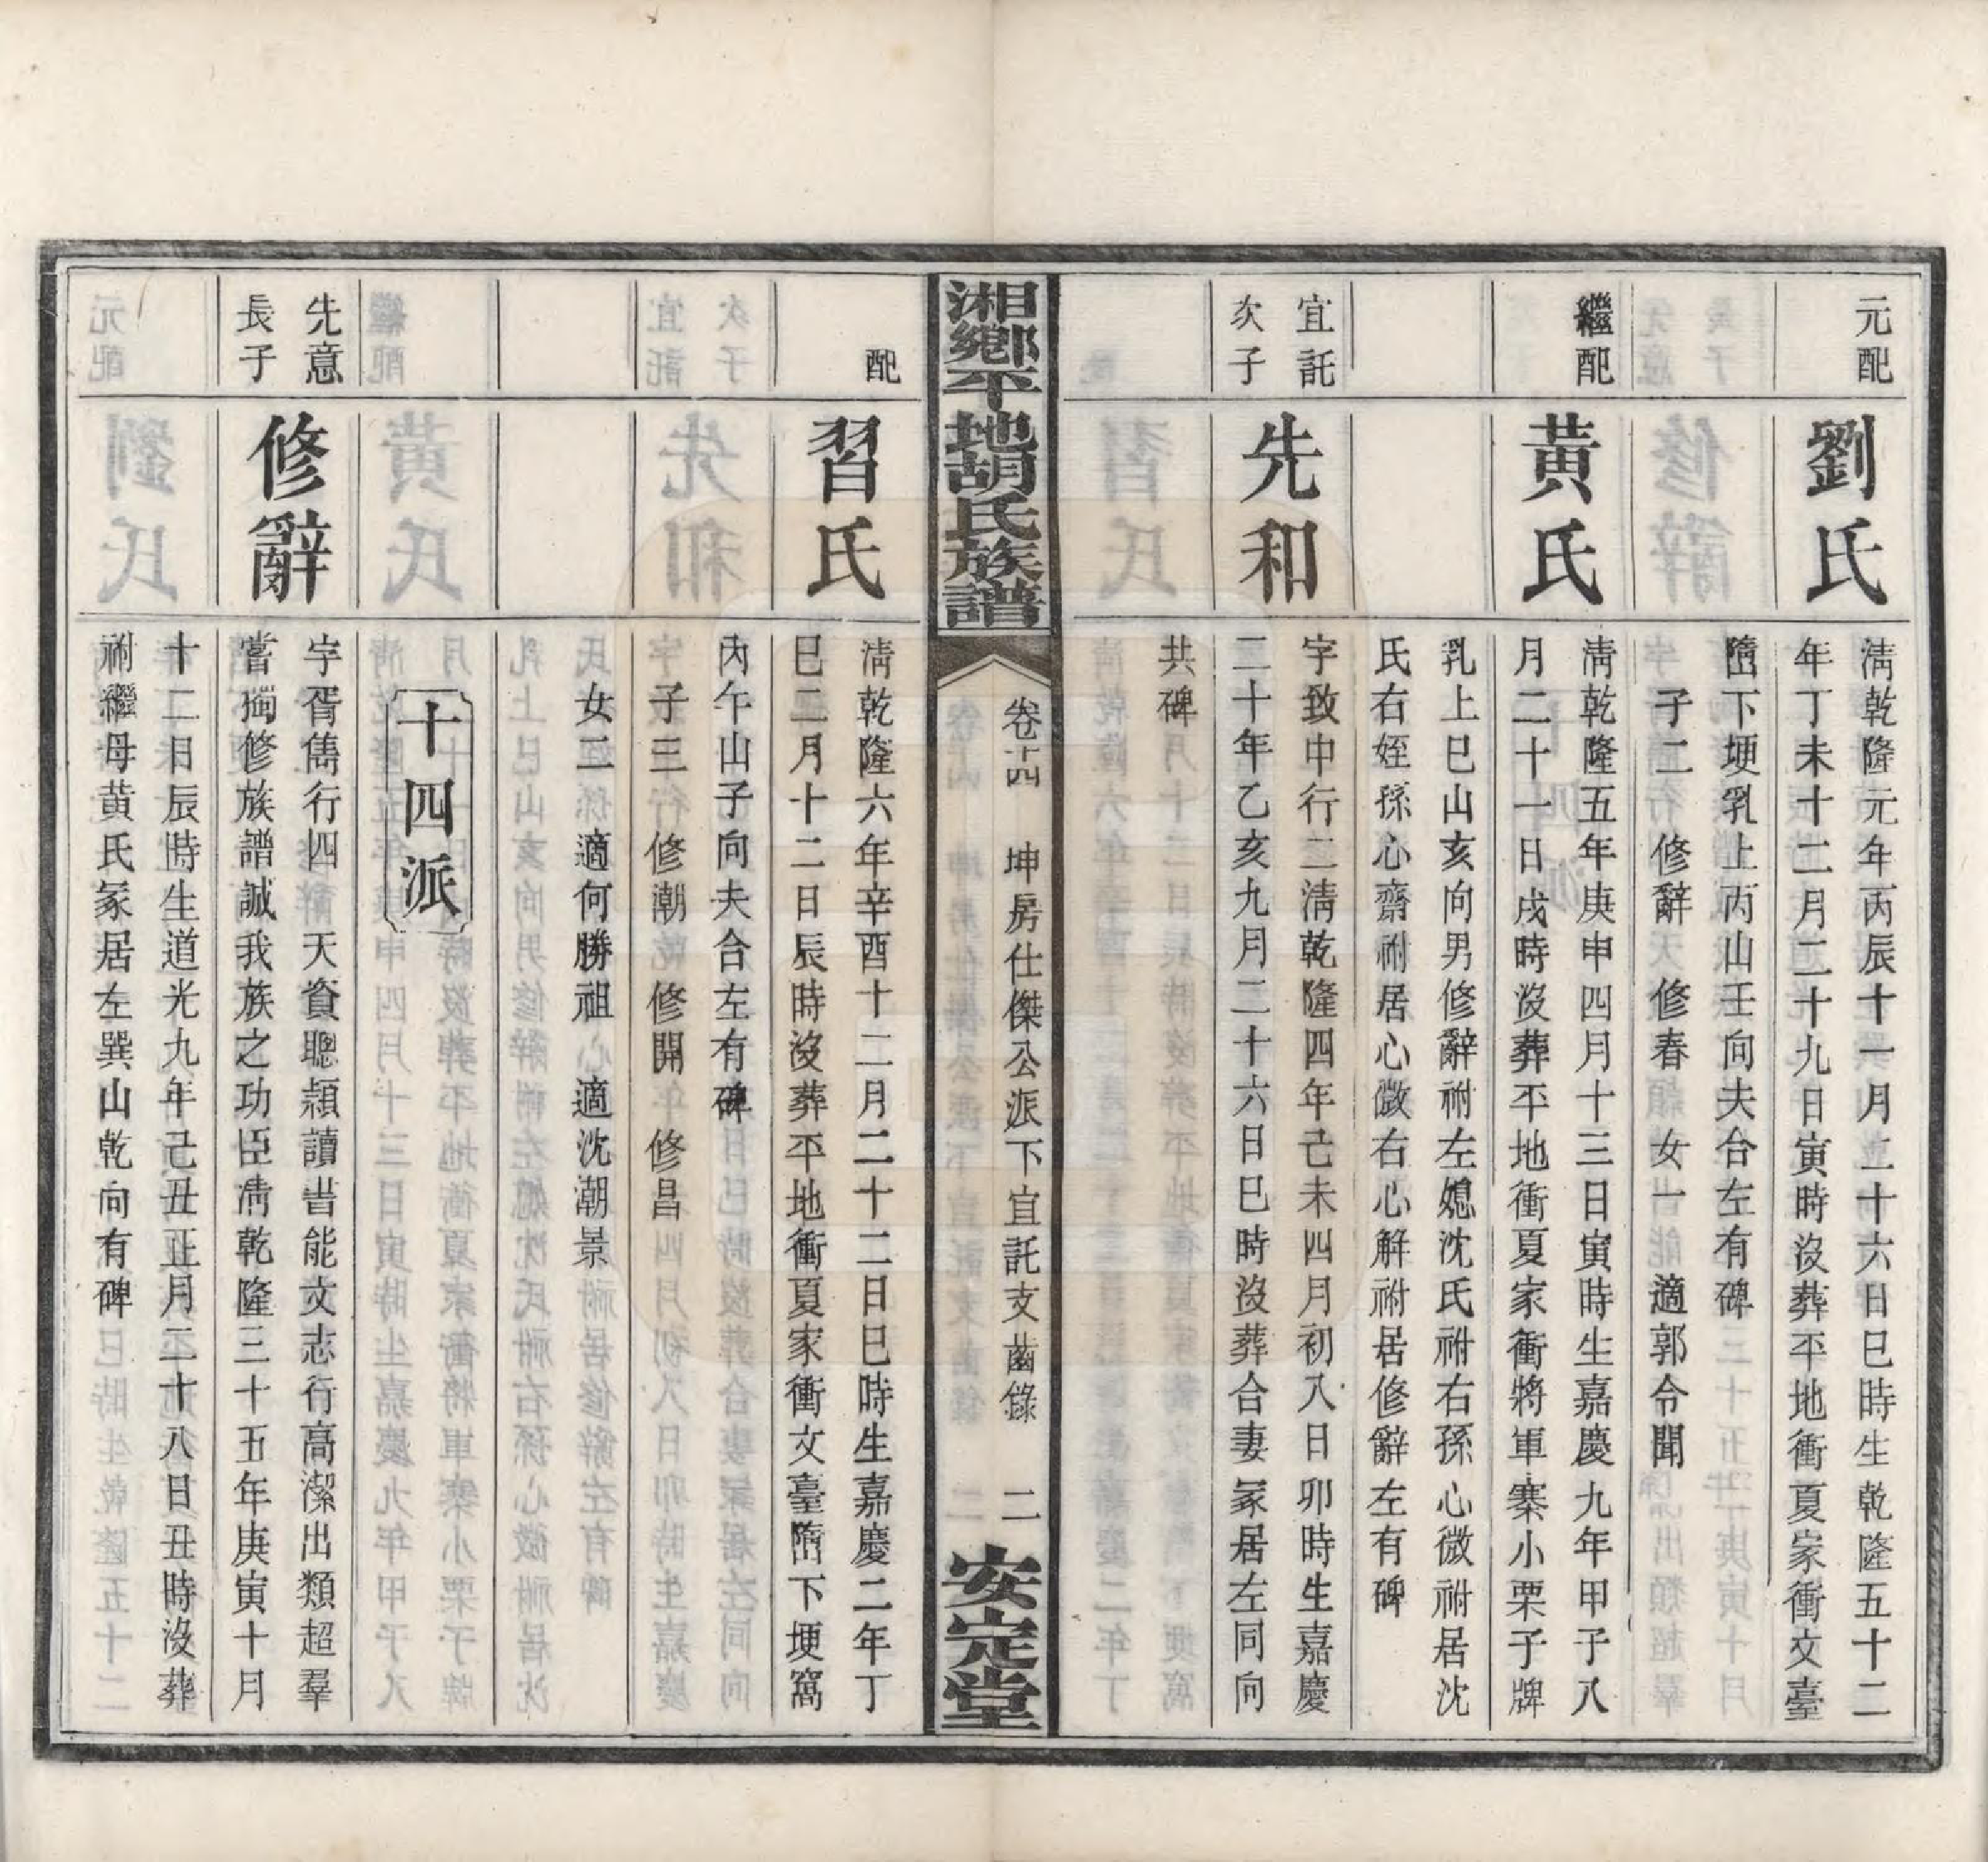 元配
劉氏
淸乾隆元年丙辰十一月二十六日巳時生乾隆五十二
年丁未十二月二十九日寅時沒葬平地衝夏家衝文臺
墮下埂乳上丙山壬向夫合左有碑
子二　修辭　修春　女一　適郭令聞
繼配
黃氏
淸乾隆五年庚申四月十三日寅時生嘉慶九年甲子八
月二十一日戌時沒葬平地衝夏家衝將軍寨小栗子牌
乳上巳山亥向男修辭祔左媳沈氏祔右孫心微祔居沈
氏右姪孫心齋祔居心微右心解祔居修辭左有碑
宜託
次子
先和
字致中行二淸乾隆四年己未四月初八日卯時生嘉慶
二十年乙亥九月二十六日巳時沒葬合妻冢居左同向
共碑
湘鄉平地胡氏族譜
卷十四　坤房仕傑公派下宜託支齒錄　二
安定堂
配
習氏
淸乾隆六年辛酉十二月二十二日巳時生嘉慶二年丁
巳二月十二日辰時沒葬平地衝夏家衝文臺墮下埂窩
內午山子向夫合左有碑
子三　修潮　修開　修昌
女二　適何勝祖　適沈潮景
十四派
先意
長子
修辭
字胥雋行四天資聰穎讀書能文志行高潔出類超羣
嘗獨修族譜誠我族之功臣淸乾隆三十五年庚寅十月
十二日辰時生道光九年己丑正月二十八日丑時沒葬
祔繼母黃氏冢居左巽山乾向有碑